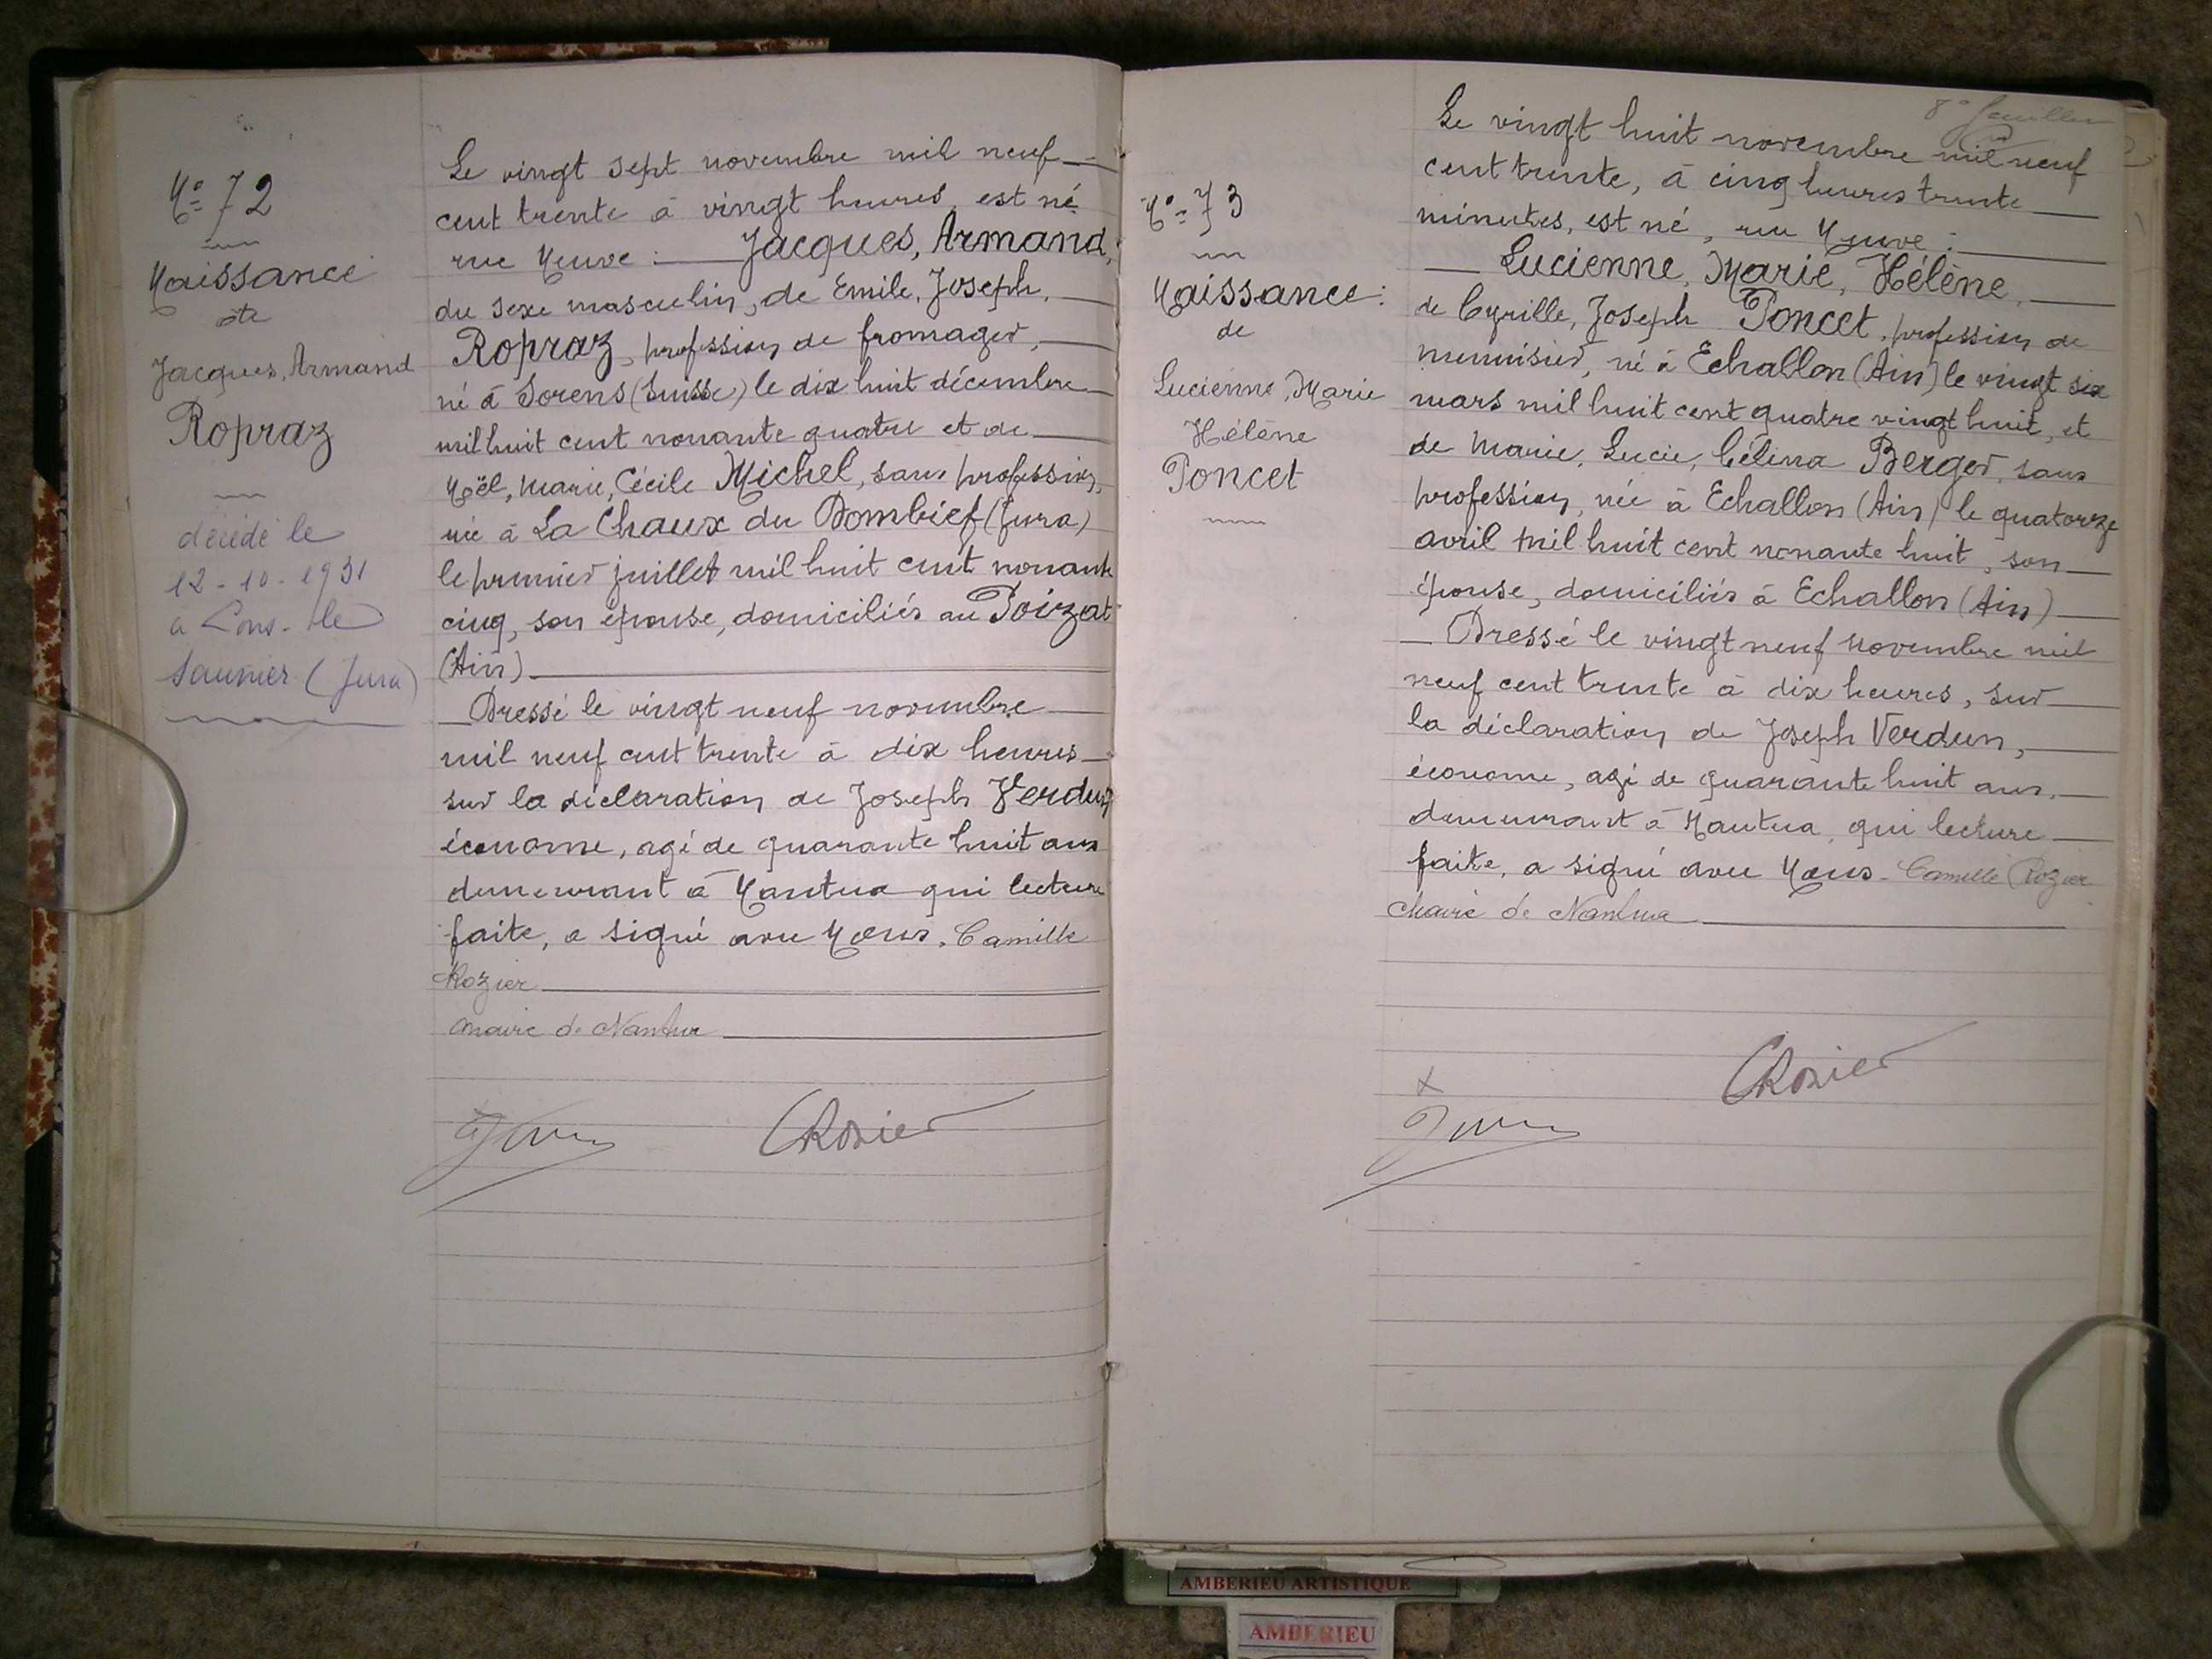 N° 72
Naissance
de
Jacques, Armand
Ropraz
décédé le
12-10-1931
à Lons-le
Saunier (Jura)
Le vingt sept novembre mil neuf
cent trente à vingt heures, est né
rue Neuve : Jacques, Armand,
du sexe masculin, de Emile, Joseph,
Ropraz, profession de fromager,
né à Sorens (Suisse) le dix huit décembre
mil huit cent nonante quatre et de
Noël, Marie, Cécile Michel, sans profession,
née à La Chaux du Dombief (Jura)
le premier juillet mil huit cent nonante
cinq, son épouse, domiciliés au Poizat
(Ain)
Dressé le vingt neuf novembre
mil neuf cent trente à dix heures
sur la déclaration de Joseph Verdun
économe, agé de quarante huit ans
demeurant à Nantua qui lecture
faite, a signé avec Nous. Camille
Rozier
maire de Nantua
CRozier
8e feuillet
N° 73
Naissance :
de
Lucienne, Marie
Hélène
Poncet
Le vingt huit novembre mil neuf
cent trente, à cinq heures trente
minutes, est né, rue Neuve :
Lucienne, Marie, Hélène,
de Cyrille, Joseph Poncet, profession de
menuisier, né à Echallon (Ain) le vingt six
mars mil huit cent quatre vingt huit, et
de Marie, Lucie, Célina Berger, sans
profession, née à Echallon (Ain) le quatorze
avril mil huit cent nonante huit, son
épouse, domiciliés à Echallon (Ain)
Dressé le vingt neuf novembre mil
neuf cent trente à dix heures, sur
la déclaration de Joseph Verdun,
économe, agé de quarante huit ans,
demeurant à Nantua, qui lecture
faite, a signé avec Nous. Camille Rozier
Maire de Nantua
CRozier
AMBERIEU ARTISTIQUE
AMBERIEU